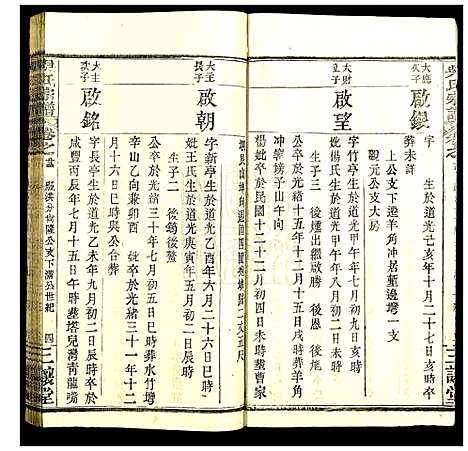 大應
次子
啟銀
字 生於道光己亥年十月二十六日亥時卒
葬未詳
上公支下遷羊角冲居董邊塆一支
觀元公支大房
大財
子
啟望
字竹亭生於道光甲午年八月初二日亥時
妣楊氏生於道光甲午年七月初九日
生子三 後煙出繼啟勝 後炳 後
公卒於光緒十五年十二月十五日戌時葬羊角
冲崇塝子山子午向
楊妣卒於民國十二年十二月初四日未時葬曹家
大主
長子
啟朝
字新亭生於道光乙酉年六月二十六日巳時
妣王氏生於道光庚寅年五月初二日
生子二 後銅 後鰲
公卒於光緒三十年七月初五日巳時葬水竹塆
辛山乙向兼卯酉 妣卒於光緒三十一年十二
月初二日辰時與公合葬
大主
次子
啟銘
字長亭生於道光十二年九月初二日辰時卒於
咸豐丙辰年七月十五日午時葬塔兒灣青龍嘴
尹氏宗譜
卷之
洪分尚隆公支下滿公世紀
四
三讓堂